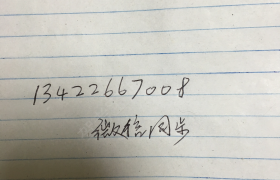 13422667008
微信同步